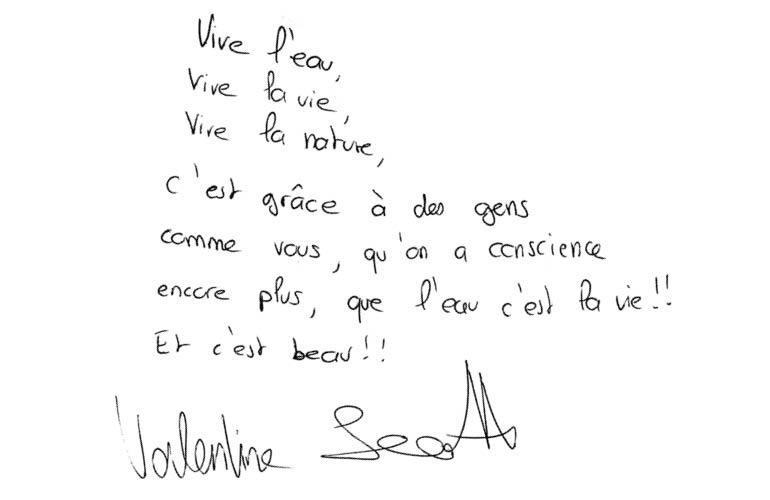 Vive l'eau,
Vive la vie,
Vive la nature,
c'est grâce à des gens
comme vous, qu'on a conscience
encore plus, que l'eau c'est la vie!!
Et c'est beau!!
Valentine Scott